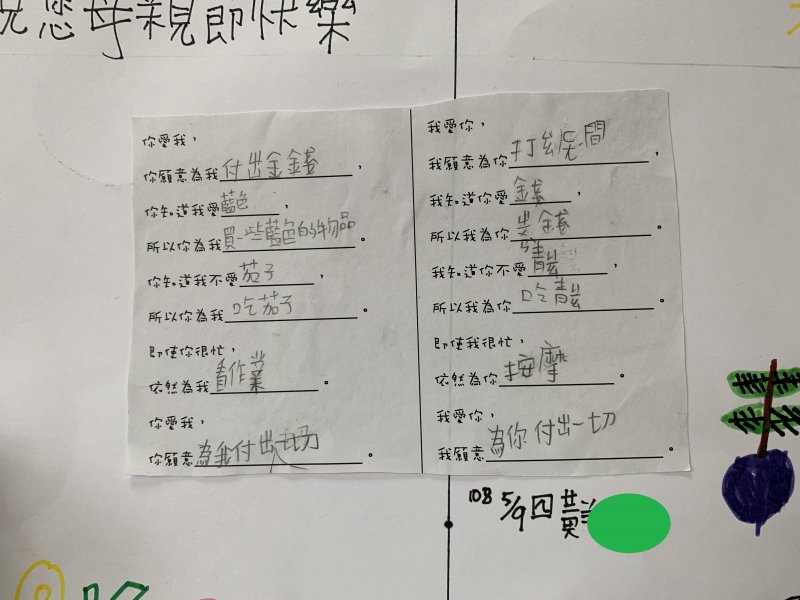 祝您母親節快樂
你愛我，
你願意為我付出金錢，
你知道我愛藍色，
所以你為我買一些藍色的物品。
你知道我不愛茄子，
所以你為我吃茄子。
即使你很忙，
依然為我看作業。
你愛我，
你願意為我付出一切。
我愛你，
我願意為你打掃房間，
我知道你愛錢，
所以我為你 錢。
我知道你不愛
所以我為你吃
即使我很忙，
依然為你按摩。
我愛你，
我願意為你付出一切。
108 5/9 四 黃